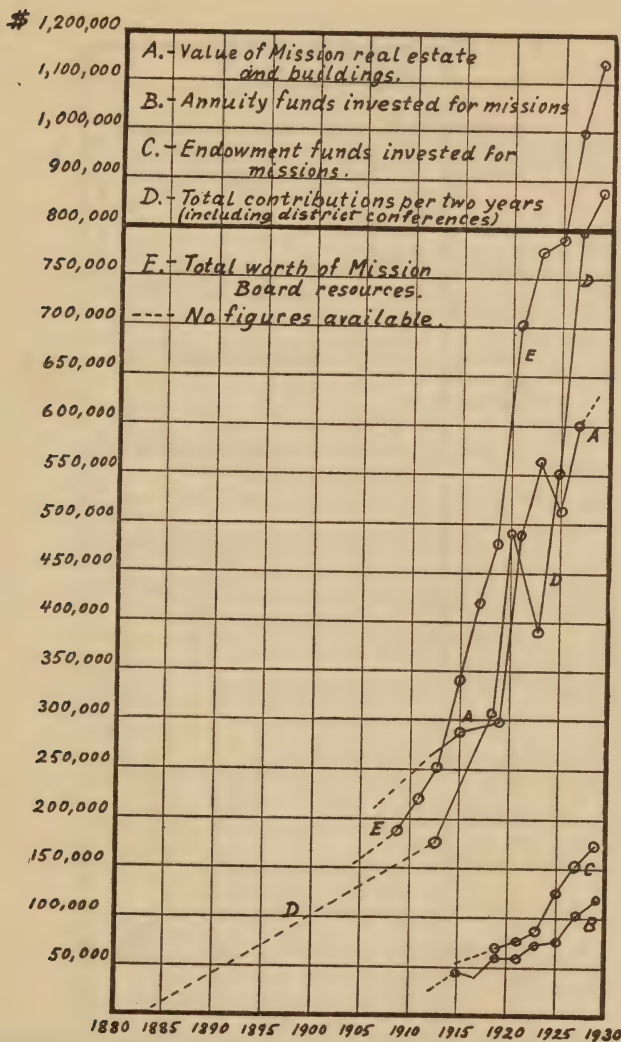 $ 1,200,000
1,100,000
1,000,000
900,000
800,000
750,000
700,000
650,000
600,000
550,000
500,000
450,000
400,000
350,000
300,000
250,000
200,000
150,000
100,000
50,000
A.- Value of Mission real estate
and buildings.
B.- Annuity funds invested for missions
C.- Endowment funds invested for
missions.
D.- Total contributions per two years
(including district conferences)
E.- Total worth of Mission
Board resources.
---- No figures available.
D
E
A
D
A
E
D
C
B
1880 1885 1890 1895 1900 1905 1910 1915 1920 1925 1930